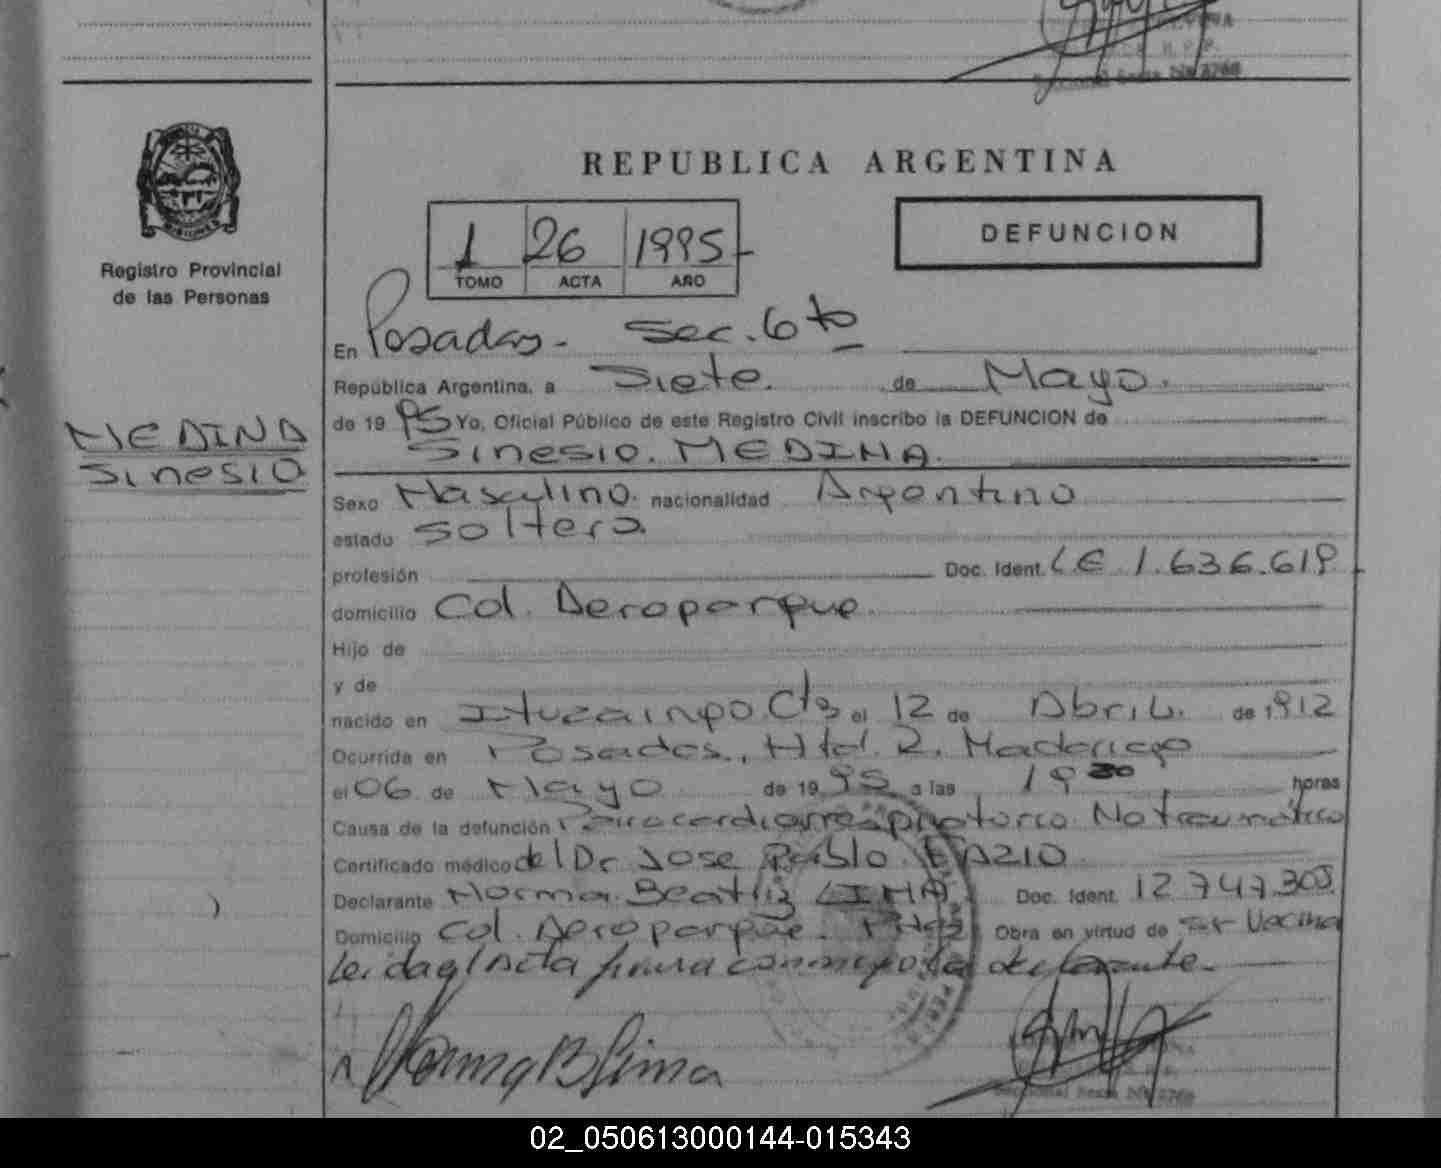 REPUBLICA ARGENTINA
1 26 1995
TOMO ACTA AÑO
DEFUNCION
MISIONES
Registro Provincial
de las Personas
MEDINA
Sinesio
En Posadas - Sec. 6to
República Argentina, a Siete de Mayo.
de 19 95 Yo, Oficial Público de este Registro Civil inscribo la DEFUNCION de
Sinesio. MEDINA.
Sexo Masculino. nacionalidad Argentino
estado soltera
profesión Doc. Ident. LE 1.636.619
domicilio Col. Aeroparque.
Hijo de
y de
nacido en Ituzaingo. Cts el 12 de Abril. de 1912
Ocurrida en Posadas, Htal. R. Madariaga
el 06 de Mayo de 19 95 a las 19 30 horas
Causa de la defunción Parocardiorrespiratorio No traumático
Certificado médico del Dr Jose Pablo FAZIO
Declarante Norma Beatriz LIMA Doc. Ident. 12.747.303.
Domicilio Col. Aeroparque. Obra en virtud de ser Vecina
Leida el Acta firma conmigo la declarante.
Norma B Lima
02_050613000144-015343